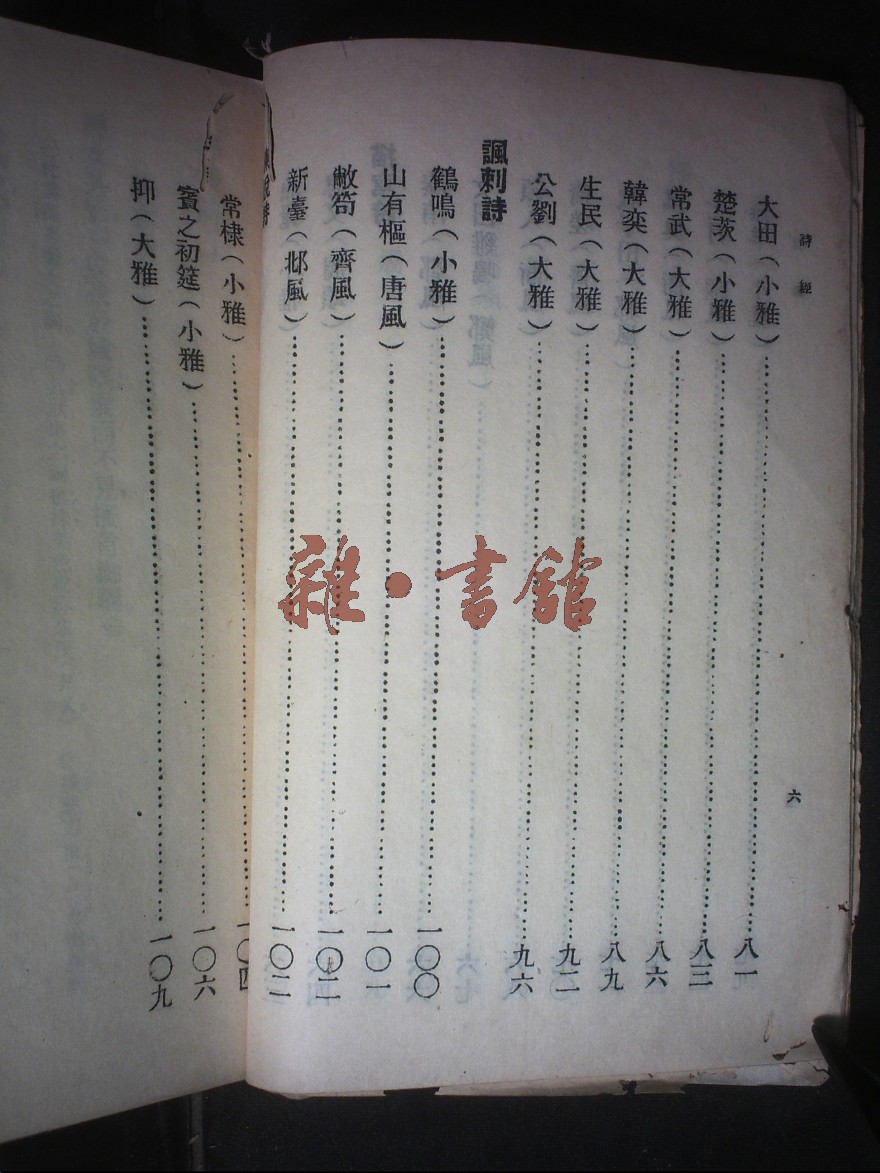 詩經
六
大田（小雅）……八一
楚茨（小雅）……八三
常武（大雅）……八六
韓奕（大雅）……八九
生民（大雅）……九二
公劉（大雅）……九六
諷刺詩
鶴鳴（小雅）……一〇〇
山有樞（唐風）……一〇一
敝笱（齊風）……一〇二
新臺（邶風）……一〇二
說詩
常棣（小雅）……一〇四
賓之初筵（小雅）……一〇六
抑（大雅）……一〇九
雜·書館